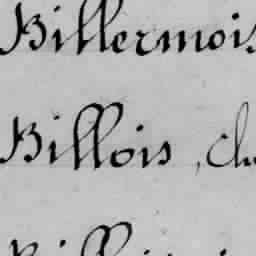 Billermois
Billois, Ch